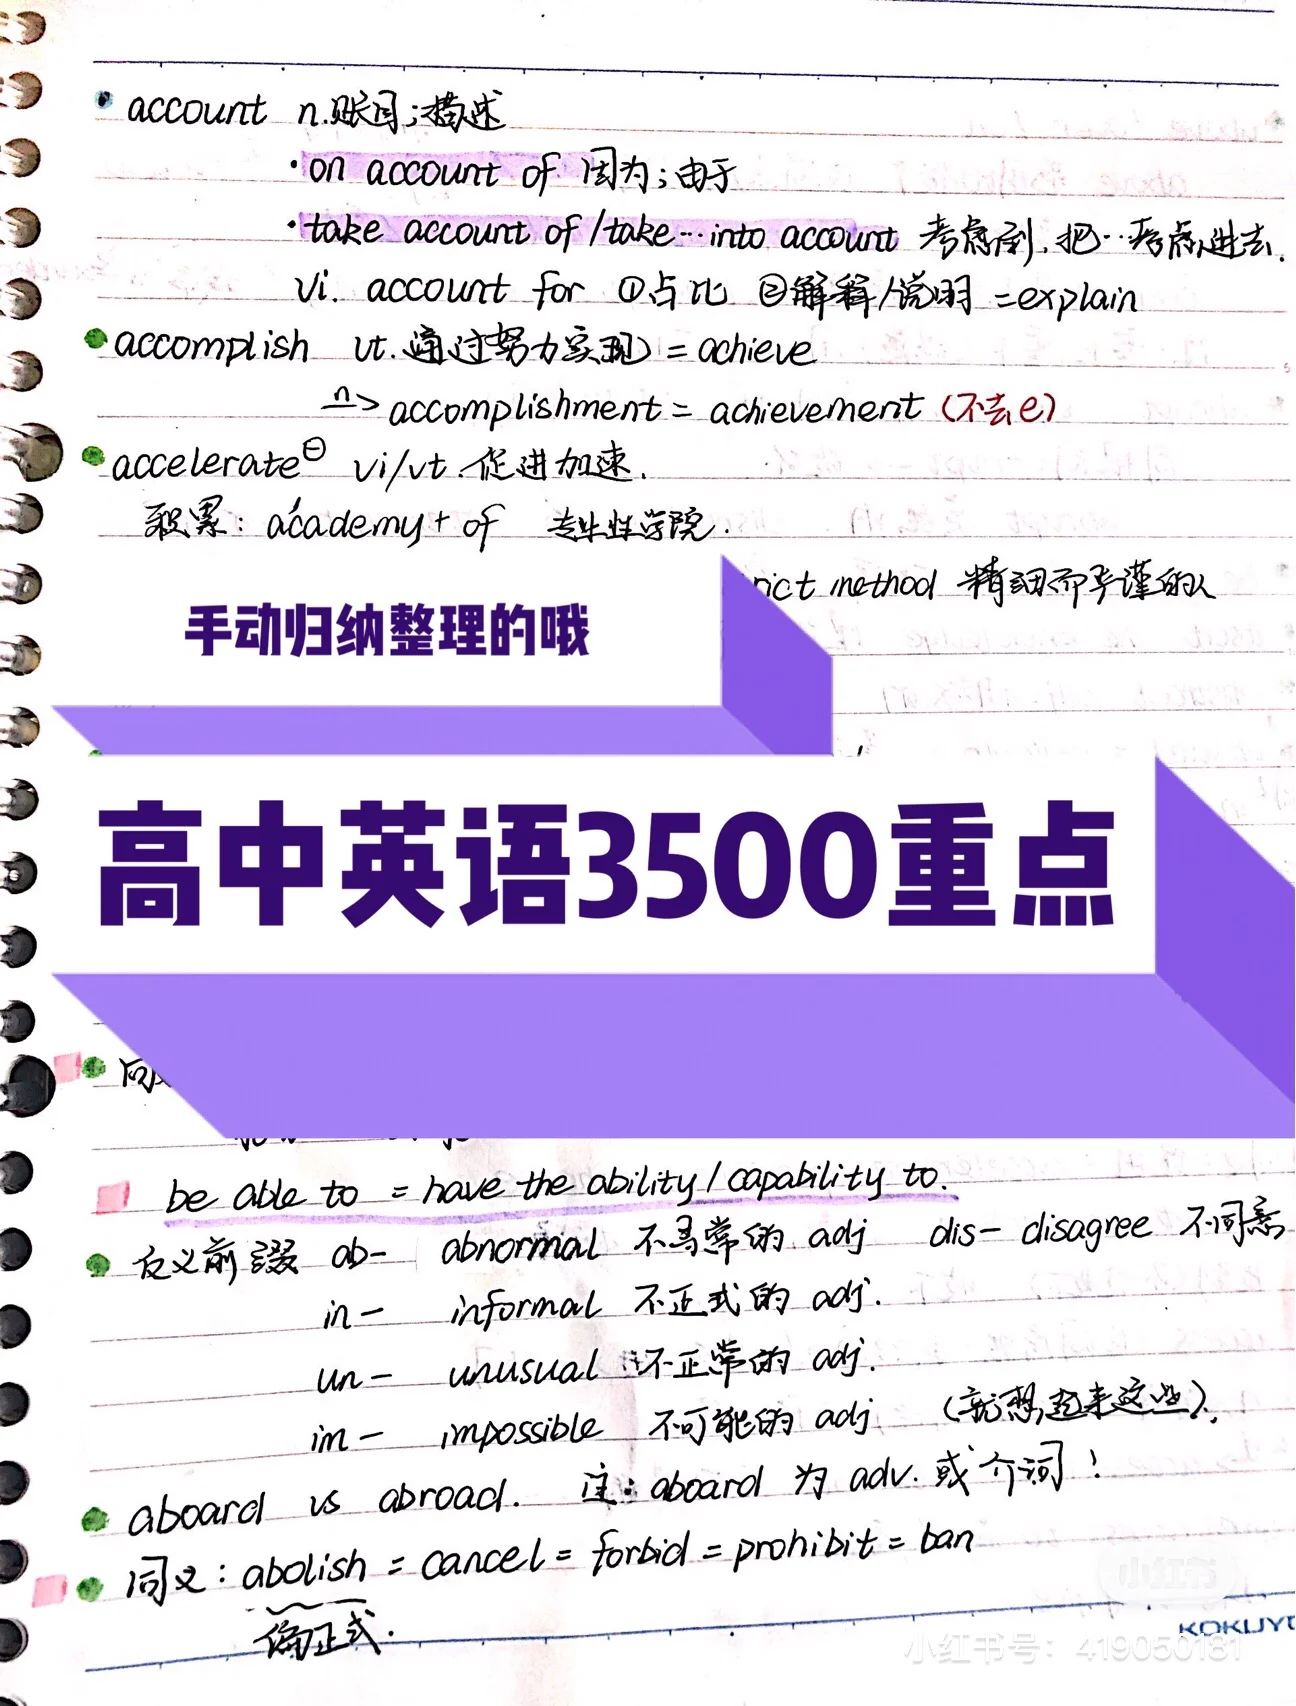 account n.账目;描述
·on account of 因为;由于
·take account of/take…into account 考虑到.把…考虑进去.
vi. account for ①占比 ②解释/说明 =explain
accomplish vt.(通过努力实现) = achieve
n> accomplishment = achievement (不去e)
accelerate⊖ vi/vt.促进加速.
积累: academy + of 专业性学院.
rict method 精细而严谨的
手动归纳整理的哦
高中英语3500重点
同义
be able to = have the ability/capability to.
反义前缀 ab- abnormal 不寻常的 adj dis- disagree 不同意
in- informal 不正式的 adj.
un- unusual 不正常的 adj.
im- impossible 不可能的 adj (就想起来这些).
aboard vs abroad. 注: aboard 为 adv.或介词!
同义: abolish = cancel = forbid = prohibit = ban
偏正式.
小红书
KOKUYO
小红书号: 419050181